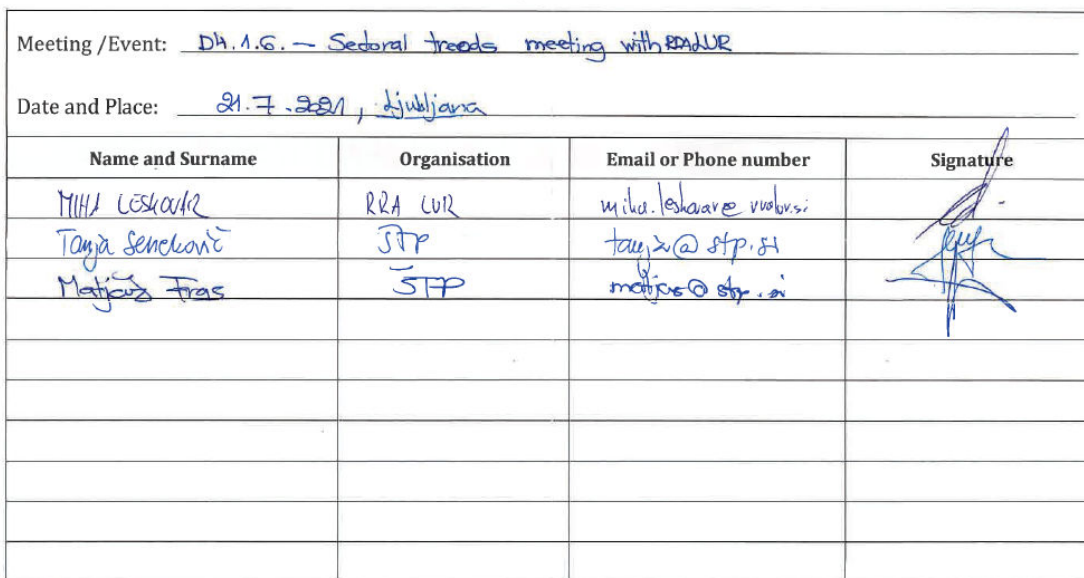 Meeting /Event: D4.1.6. – Sectoral trends meeting with RRA LUR
Date and Place: 21.7.2021, Ljubljana
Name and Surname Organisation Email or Phone number Signature
MIHA LESKOVAR RRA LUR miha.leskovar@
Tanja Senekovič STP tanja@stp.si
Matjaž Fras ŠTP matjaz@stp.si